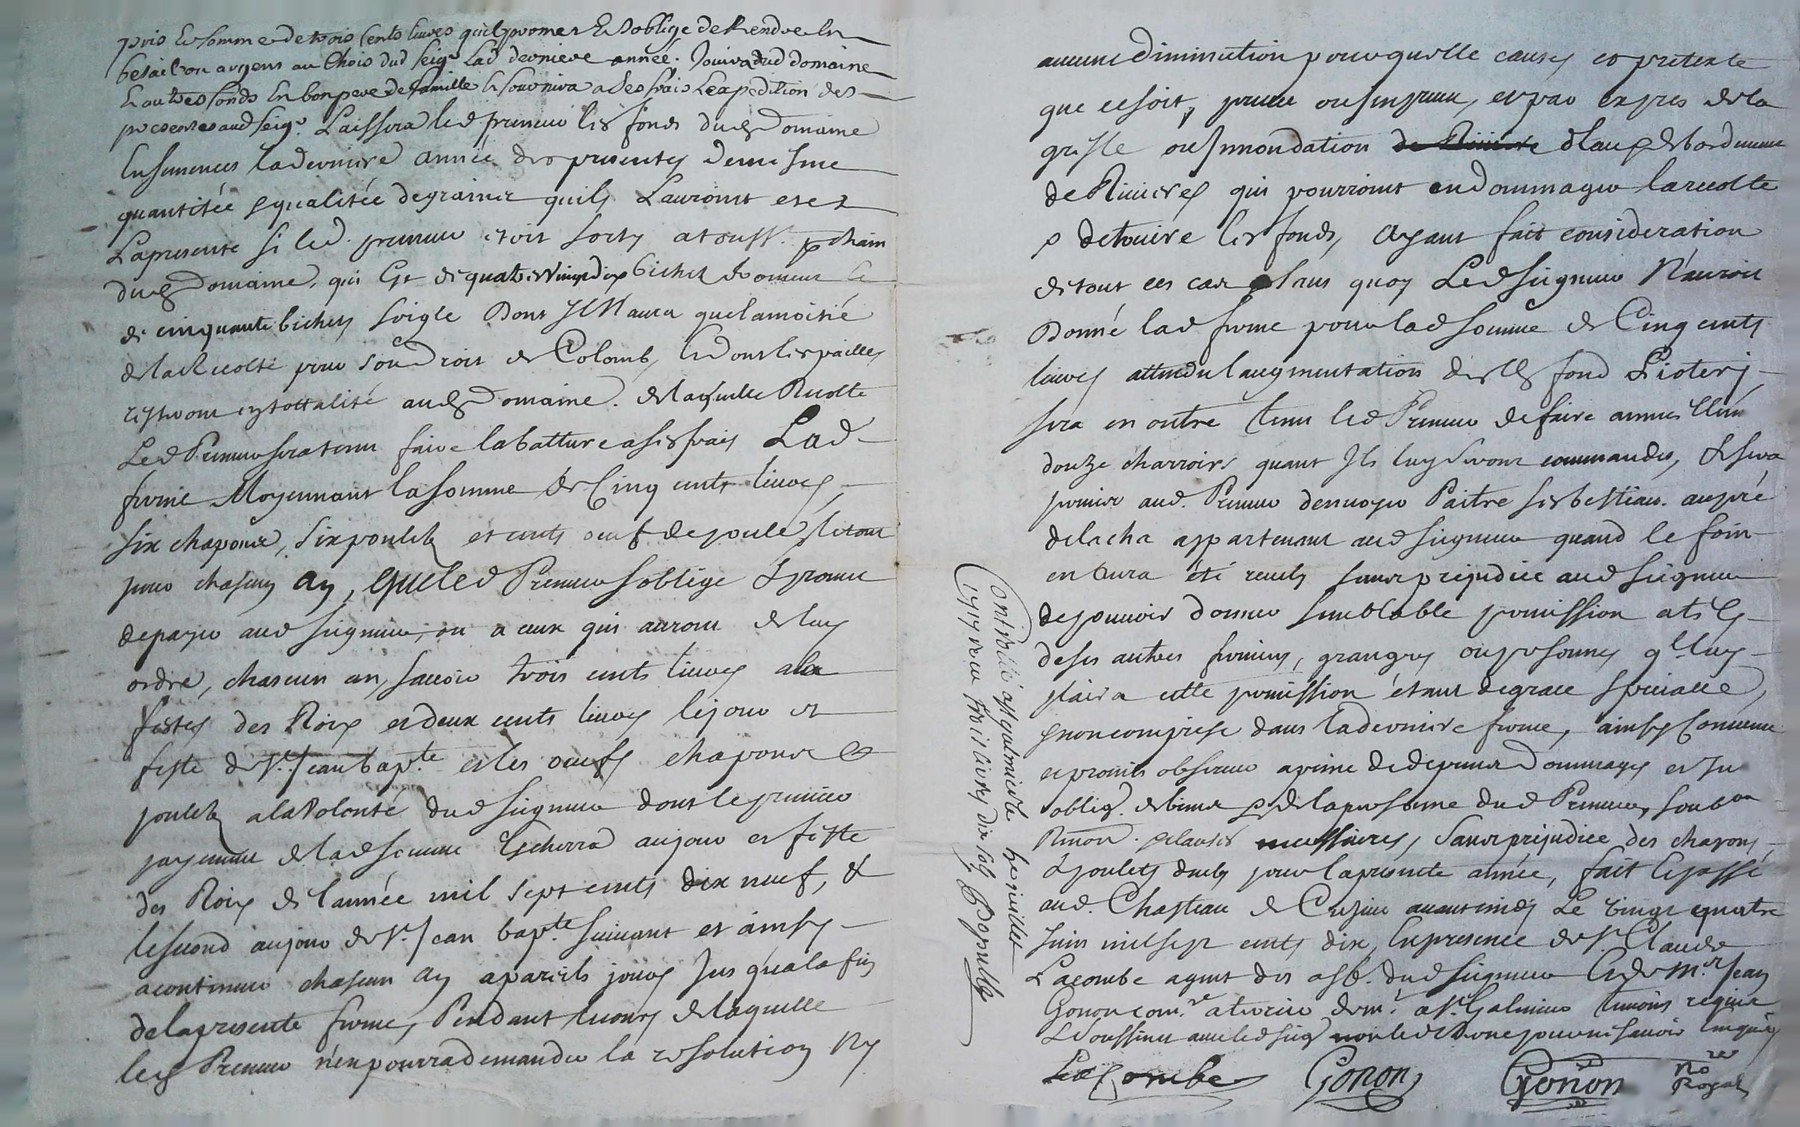 pris la somme de trois cents livres quil promet et soblige de Rendre en
betail ou argent au Choix dud seigr lad derniere année. Jouira dud domaine
et autres fonds en bon pere de famille et fournira a ses frais lexpedition des
presentes aud seigr. Laissera led preneur les fonds dud Domaine
Ensemencés la derniere année des presentes de mesme
quantitée & qualitée de graines quils l'auront esté
La presente si led. preneur etoit sorty a touss. pchain
dud Domaine, qui est de quatrevingt dix bichets froment et
de cinquante bichets soigle Dont Il N'aura que la moitié
de la Recolte pour son droit de Colomb, et dont les pailles
resteront en tottalité aud Domaine. de laquelle Recolte
Led Preneur sera tenu faire la batture a ses frais Lad
ferme Moyennant la somme de Cinq cents livres,
six chapons, six poulets et cents oeuf de poule, le tout
pour chascun an, que led Preneur soblige & promet
de payer aud seigneur, ou a ceux qui auront de luy
ordre, chascun an, savoir trois cents livres a la
festes des Rois et deux cents livres le jour et
feste de St. Jean bapte et les oeufs chapons &
poulets a la Volonté dud seigneur dont le premier
payement de lad somme Escherra au jour et feste
des Rois de l'année mil sept cents dix neuf, &
le second au jour de St. Jean bapte suivant et ainsy
a continuer chascun an a pareils jours Jusqu'a la fin
de la presente ferme, Pendant le cours de laquelle
led Preneur n'en pourra demander la resolution Ny
aucune Diminution pour quelle causes et pretexte
que ce soit, preveu ou Impreveu, et par expres de la
gresle ou Innondation de Riviere d'eau & debordement
de Rivieres qui pourroient endommager la recolte
& detruire les fonds, Ayant fait consideration
de tout ces cas sans quoy Led Seigneur N'auroit
Donné lad ferme pour lad somme de Cinq cents
livres attendu l'augmentation desd fond
sera en outre tenu led Preneur de faire annuellemt
douze charroirs quant Ils luy seront commandes, & sera
permis aud. Preneur d'envoyer Paitre ses bestiaux au pré
de lacha appartenant aud seigneur quand le foin
en aura été recully sans prejudice aud seigneur
de pouvoir donner semblable permission a tels
de ses autres fermiers, grangers ou personnes ql luy
plaira cette permission étant de grace speciale,
& non comprise dans la derniere ferme, ainsy Convenu
et promis observer a peine de depens Dommages et In
oblig. de biens & de la personne dud Preneur, soub on
Renon. & clauses necessaires, sans prejudice des chapons,
& poulets deubs pour la presente année, fait et passé
aud. Chasteau de Cuzieu avant midy Le Vingt quatre
Juin mil sept cents dix, En presence de Sr. Claude
Lacombe agent des aff. dud seigneur et de Mr. Jean
Gonon comre a terrier demt. a St. Galmier temoins requis
et soussignes avec led seigr non led Preneur pour ne savoir enquis
Lacombe Gonon Gonon no re
Royal
Controllé a St galmier le juillet
1710 receu trois livres dix sols